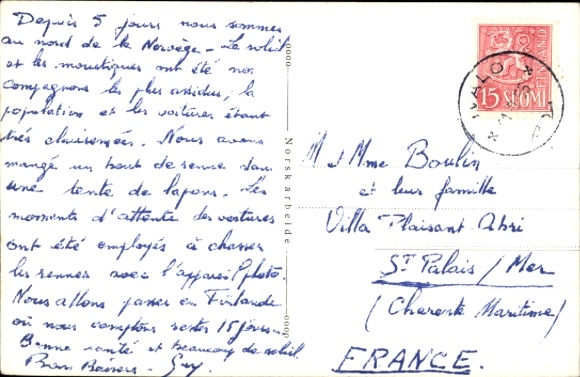 Depuis 5 jours nous sommes
au nord de la Norvège - Le soleil
et les moustiques ont été nos
compagnons les plus assidus, la
population et les voitures étant
très clairsemées. Nous avons
mangé un bout de renne dans
une tente de lapons. Les
moments d'attente des voitures
ont été employés à chasser
les rennes avec l'appareil photo.
Nous allons passer en Finlande
où nous comptons rester 15 jours -
Bonne santé et beaucoup de soleil
Bons Baisers - Guy.
oooo
Norsk arbeide
oooo
SUOMI FINLAND
15 SUOMI
IVALO
M et Mme Boulin
et leur famille
Villa Plaisant Abri
St Palais / Mer
(Charente Maritime)
FRANCE.